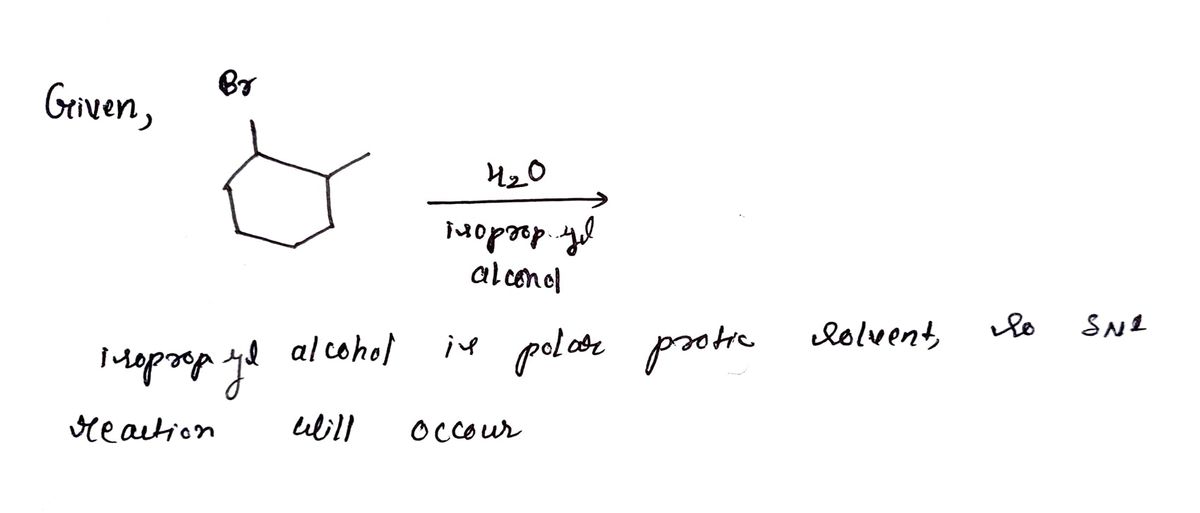 Given,
Br
H2O
isopropyl
alcohol
isopropyl alcohol is polar protic solvent, so SN1
reaction will occour